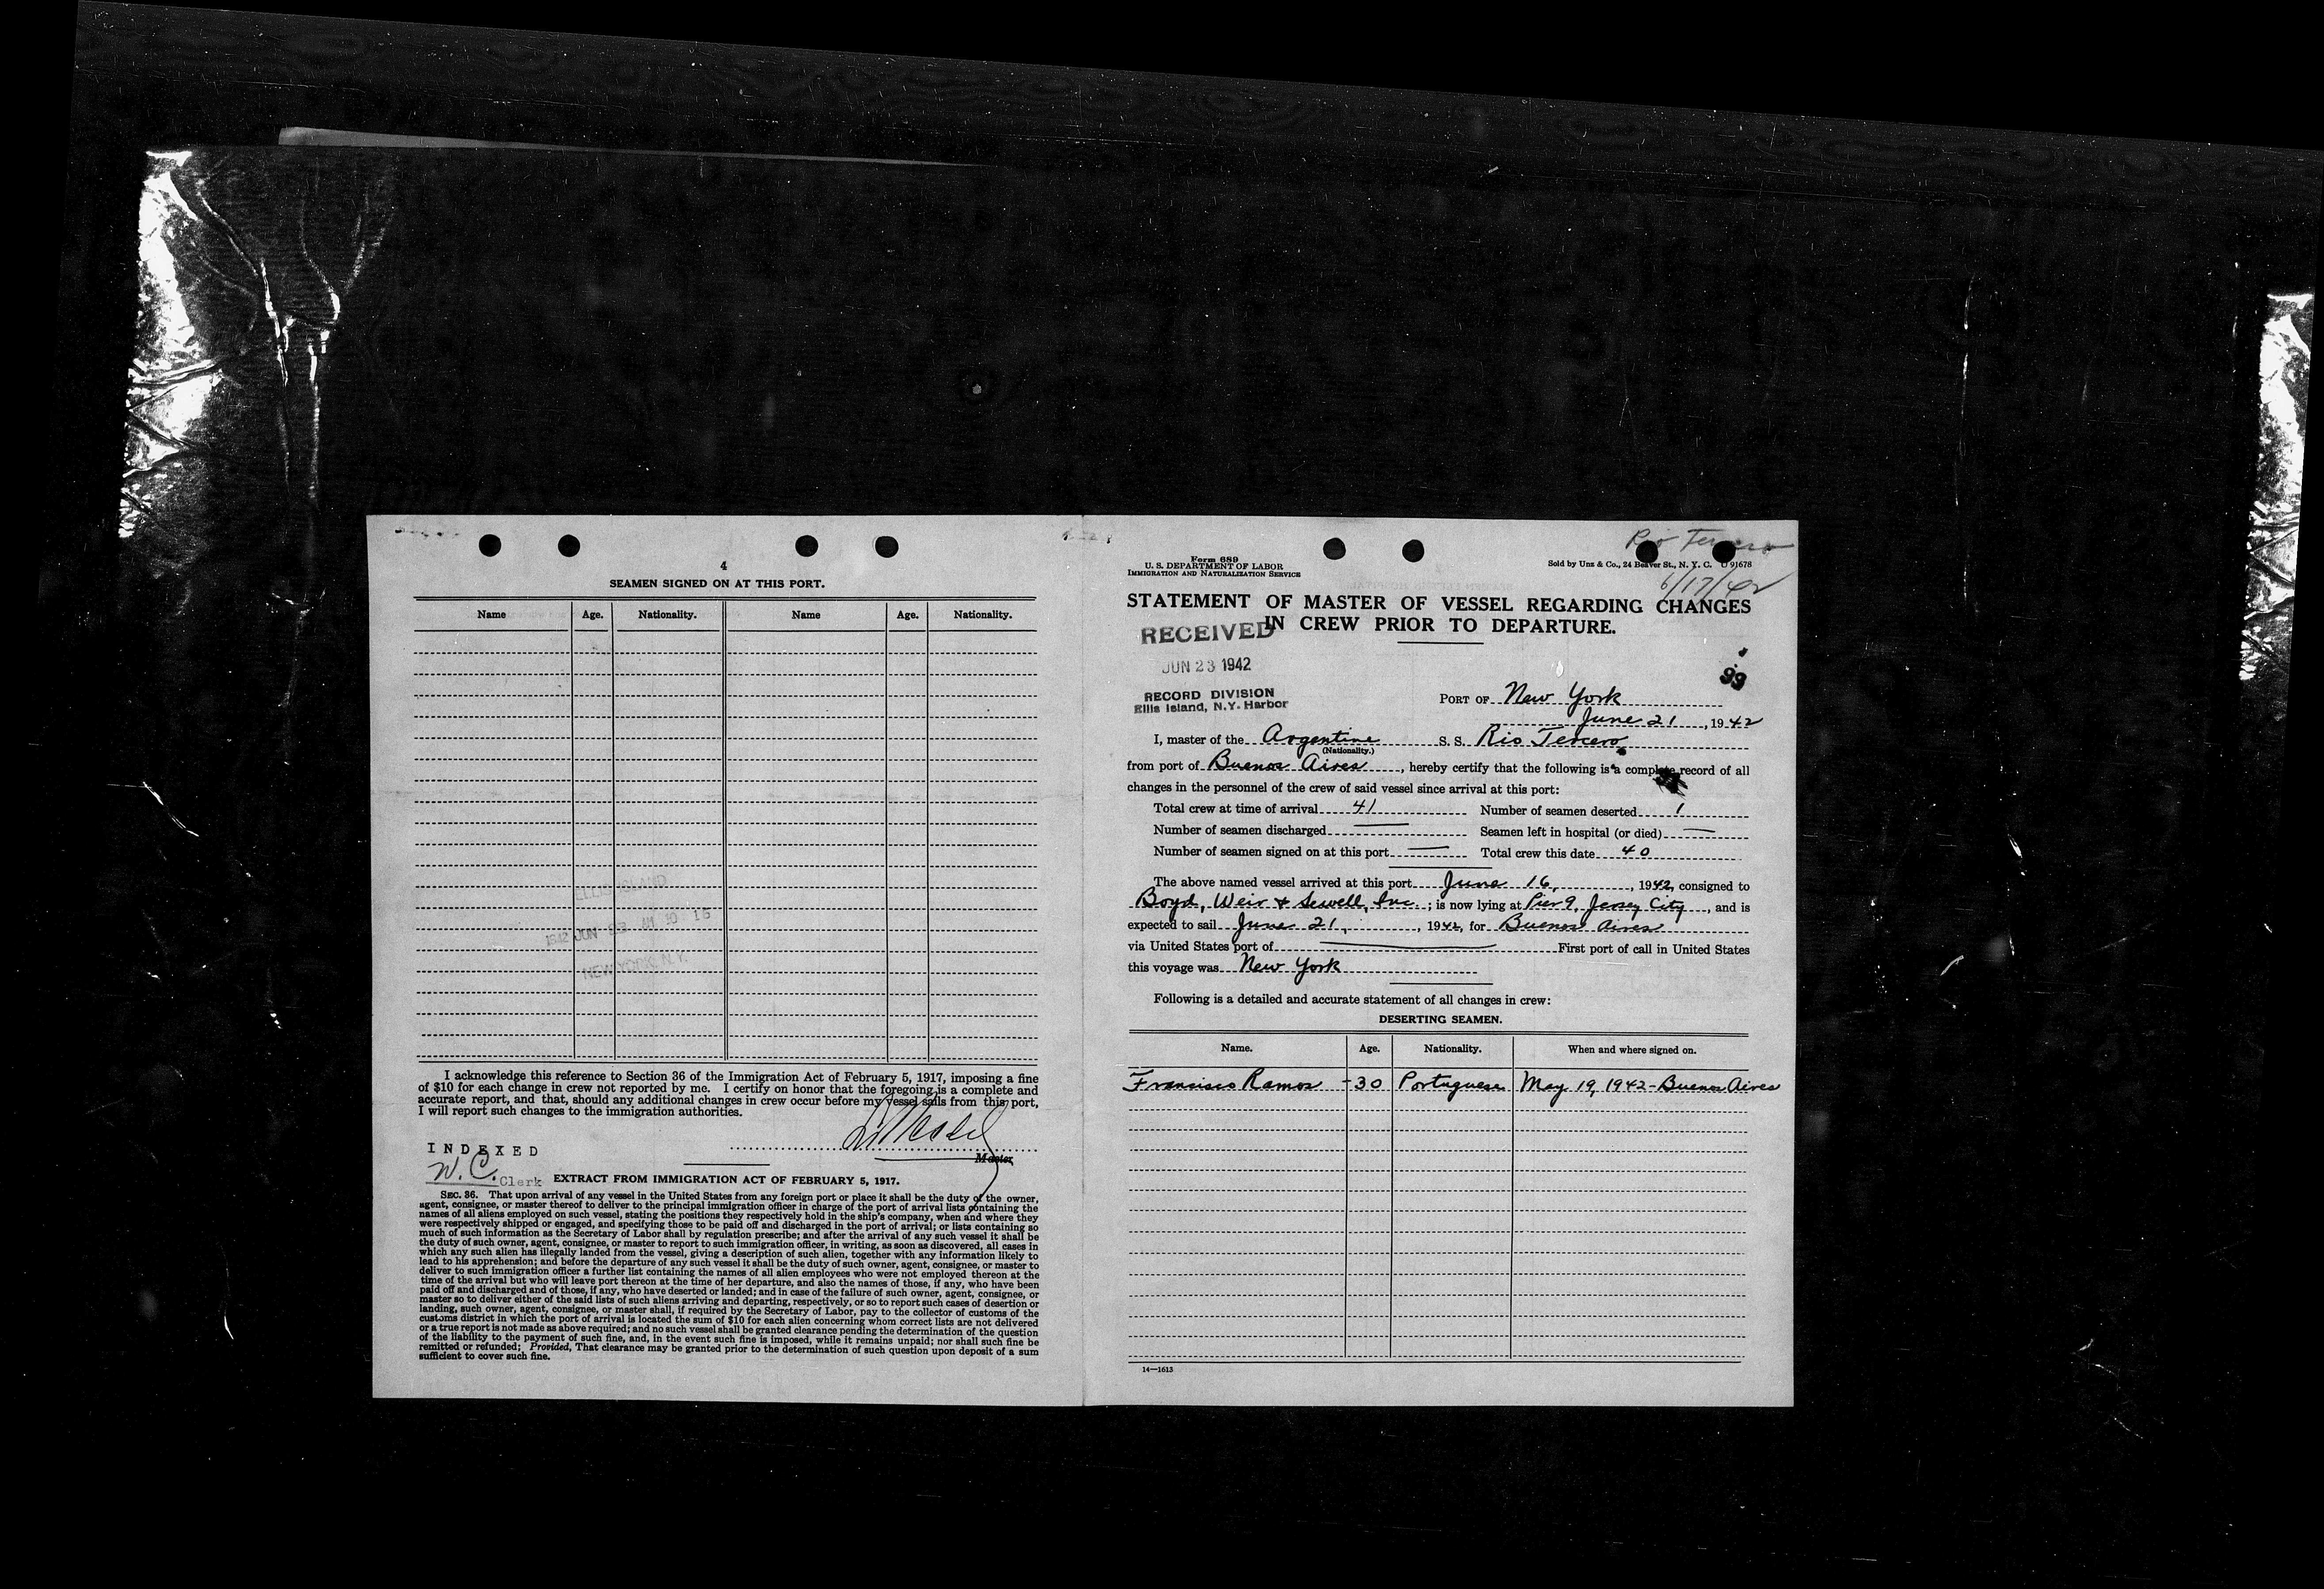 4
SEAMEN SIGNED ON AT THIS PORT.
Name Age. Nationality. Name Age. Nationality.
ELLIS ISLAND
1942 JUN 23 AM 10 16
NEW YORK, N.Y.
I acknowledge this reference to Section 36 of the Immigration Act of February 5, 1917, imposing a fine
of $10 for each change in crew not reported by me. I certify on honor that the foregoing is a complete and
accurate report, and that, should any additional changes in crew occur before my vessel sails from this port,
I will report such changes to the immigration authorities.
INDEXED
Master
W. C. Clerk
EXTRACT FROM IMMIGRATION ACT OF FEBRUARY 5, 1917.
SEC. 36. That upon arrival of any vessel in the United States from any foreign port or place it shall be the duty of the owner,
agent, consignee, or master thereof to deliver to the principal immigration officer in charge of the port of arrival lists containing the
names of all aliens employed on such vessel, stating the positions they respectively hold in the ship's company, when and where they
were respectively shipped or engaged, and specifying those to be paid off and discharged in the port of arrival; or lists containing so
much of such information as the Secretary of Labor shall by regulation prescribe; and after the arrival of any such vessel it shall be
the duty of such owner, agent, consignee, or master to report to such immigration officer, in writing, as soon as discovered, all cases in
which any such alien has illegally landed from the vessel, giving a description of such alien, together with any information likely to
lead to his apprehension; and before the departure of any such vessel it shall be the duty of such owner, agent, consignee, or master to
deliver to such immigration officer a further list containing the names of all alien employees who were not employed thereon at the
time of the arrival but who will leave port thereon at the time of her departure, and also the names of those, if any, who have been
paid off and discharged and of those, if any, who have deserted or landed; and in case of the failure of such owner, agent, consignee, or
master so to deliver either of the said lists of such aliens arriving and departing, respectively, or so to report such cases of desertion or
landing, such owner, agent, consignee, or master shall, if required by the Secretary of Labor, pay to the collector of customs of the
customs district in which the port of arrival is located the sum of $10 for each alien concerning whom correct lists are not delivered
or a true report is not made as above required; and no such vessel shall be granted clearance pending the determination of the question
of the liability to the payment of such fine, and, in the event such fine is imposed, while it remains unpaid; nor shall such fine be
remitted or refunded; Provided, That clearance may be granted prior to the determination of such question upon deposit of a sum
sufficient to cover such fine.
Rio Tercero
6/17/42
Form 689
U. S. DEPARTMENT OF LABOR
IMMIGRATION AND NATURALIZATION SERVICE
Sold by Unz & Co., 24 Beaver St., N. Y. C. U 91678
STATEMENT OF MASTER OF VESSEL REGARDING CHANGES
IN CREW PRIOR TO DEPARTURE.
RECEIVED
JUN 23 1942
RECORD DIVISION
Ellis Island, N.Y. Harbor
99
PORT OF New York
June 21, 1942
I, master of the Argentine S. S. Rio Tercero
(Nationality.)
from port of Buenos Aires, hereby certify that the following is a complete record of all
changes in the personnel of the crew of said vessel since arrival at this port:
Total crew at time of arrival 41 Number of seamen deserted 1
Number of seamen discharged — Seamen left in hospital (or died) —
Number of seamen signed on at this port — Total crew this date 40
The above named vessel arrived at this port June 16, 1942, consigned to
Boyd, Weir & Sewell, Inc.; is now lying at Pier 9, Jersey City, and is
expected to sail June 21, 1942, for Buenos Aires
via United States port of — First port of call in United States
this voyage was New York
Following is a detailed and accurate statement of all changes in crew:
DESERTING SEAMEN.
Name. Age. Nationality. When and where signed on.
Francisco Ramos - 30 Portuguese May 19, 1942 - Buenos Aires
14—1613